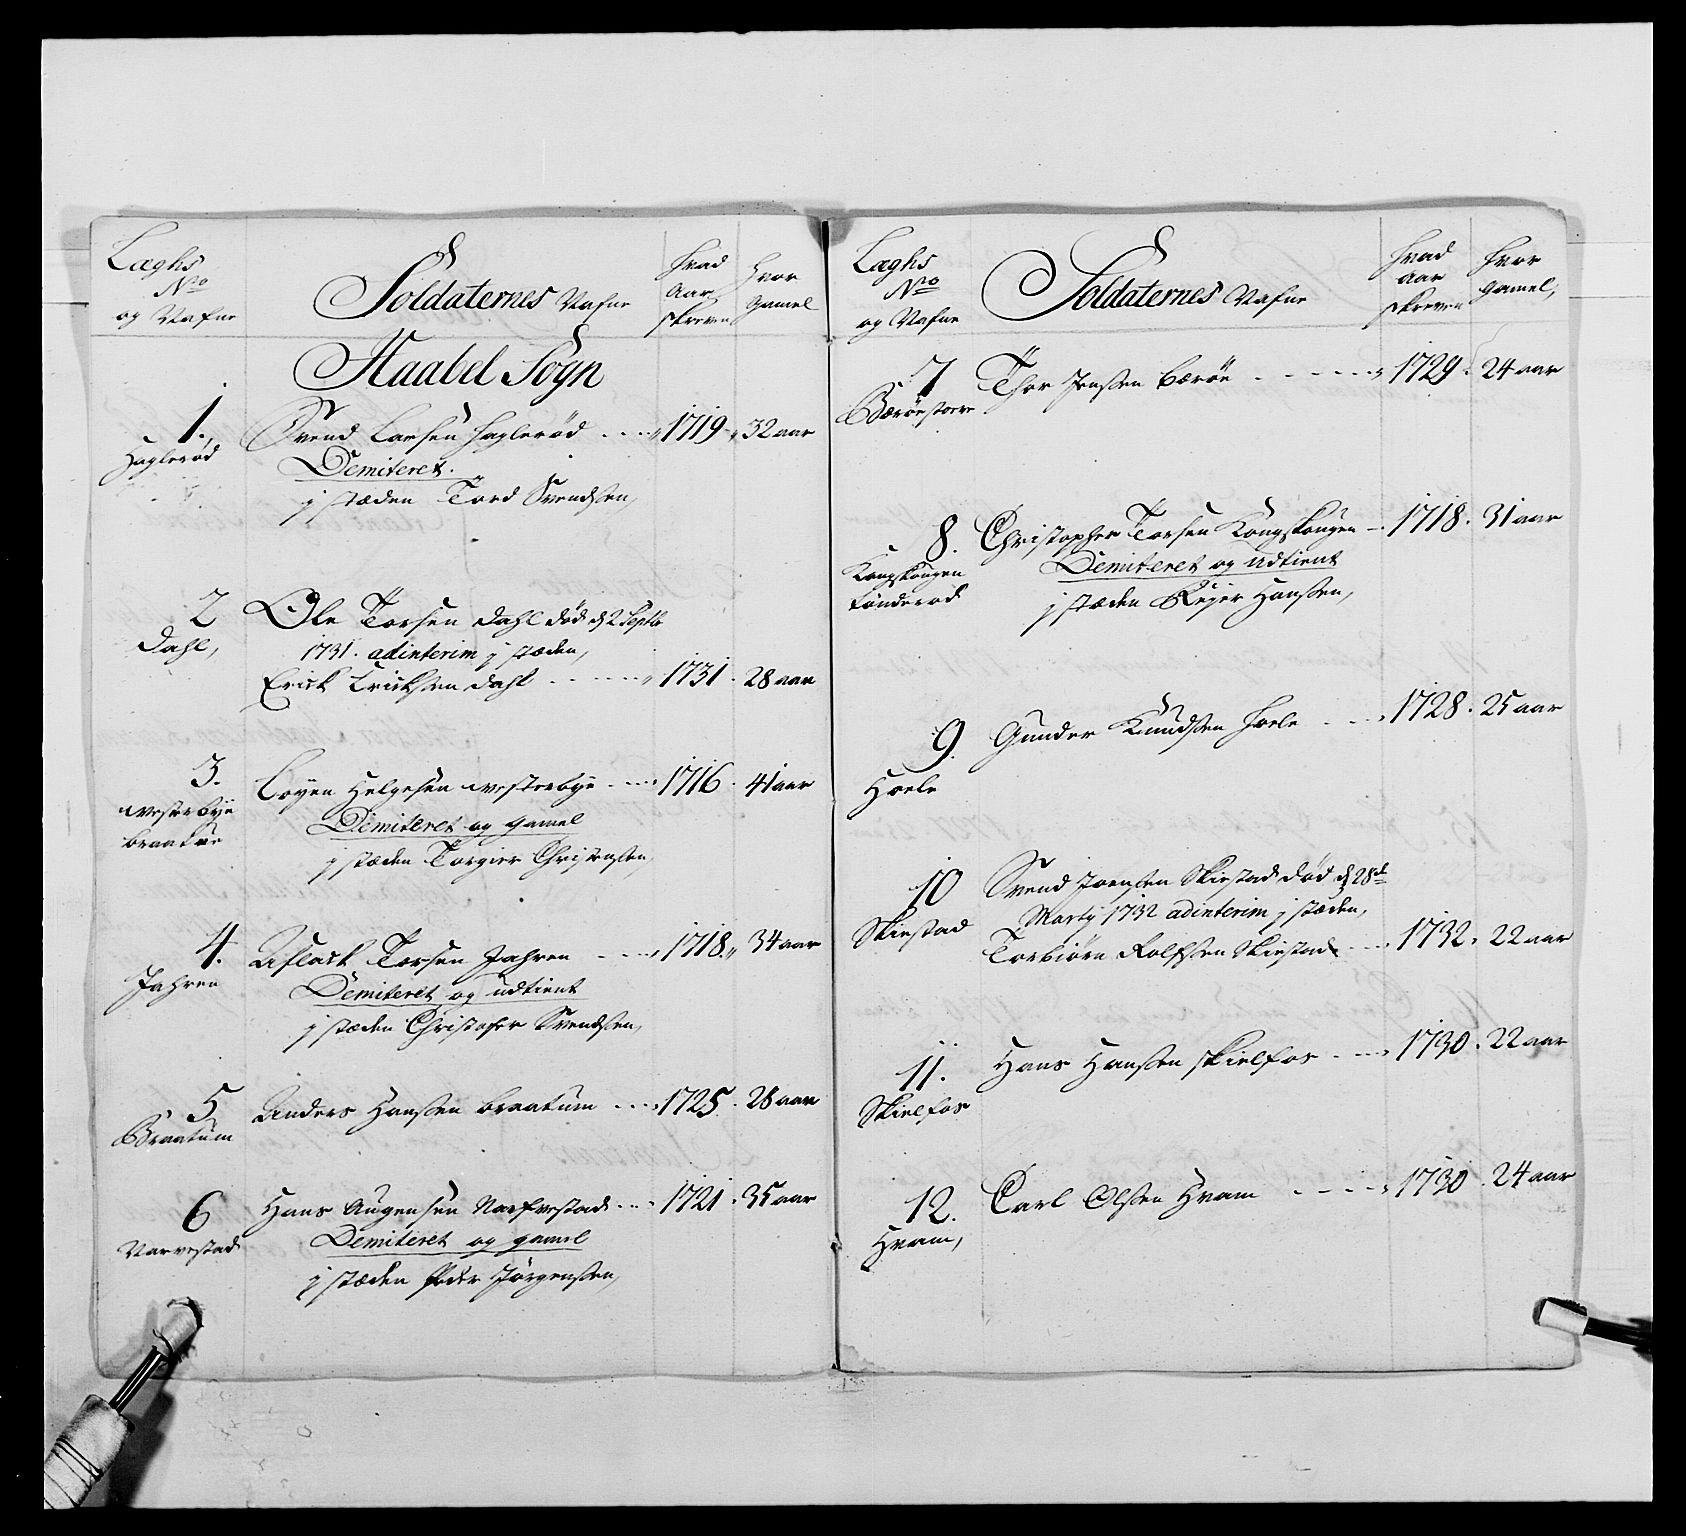 Læghs
No
og Nafne
Soldaternes Nafne
Hvad
Aar
skreven
Hvor
Gamel
Haabel Sogn
1.
Haglerød
Svend Larsen Haglerød 1719 32 aar
Demiteret.
j stæden Tord Svendsen,
2
Dahl,
Ole Torsen Dahl død d 2 Septb
1731. adinterim j stæden,
Erick Ericksen Dahl 1731. 28 aar
3.
Westerbÿe
braatue
Helgesen Westerbÿe 1716. 41 aar
Demiteret og gamel
j stæden Torgier Christensen,
4.
Jahren
Aslack Torsen Jahren 1718. 34 aar
Demiteret og udtient
j stæden Christofer Svendsen,
5
Braatum
Anders Hansen braatum 1725. 28 aar
6
Narvestad
Hans Augensen Narfvestad 1721. 35 aar
Demiteret og gamel
j stæden Peder Jørgensen,
Læghs
No
og Nafne
Soldaternes Nafne
Hvad
aar
skreven
Hvor
gamel,
7
Thor Jensen Bærøe 1729. 24 aar
8.
Kongskougen
Tønderød
Christopher Torsen Kongskougen 1718. 31 aar
Demiteret og udtient
j stæden Rejer Hansen,
9.
Hoele
Gunder Knudsen Hoele 1728. 25 aar
10
Skiestad
Svend Joensen Skiestad død d 28de
Martÿ 1732 adinterim j stæden,
Torbiørn Rolfsen Skiestad 1732. 22 aar
11.
Skielfos
Hans Hansen Skielfos 1730. 22 aar
12.
Hvam,
Carl Olsen Hvam 1730. 24 aar